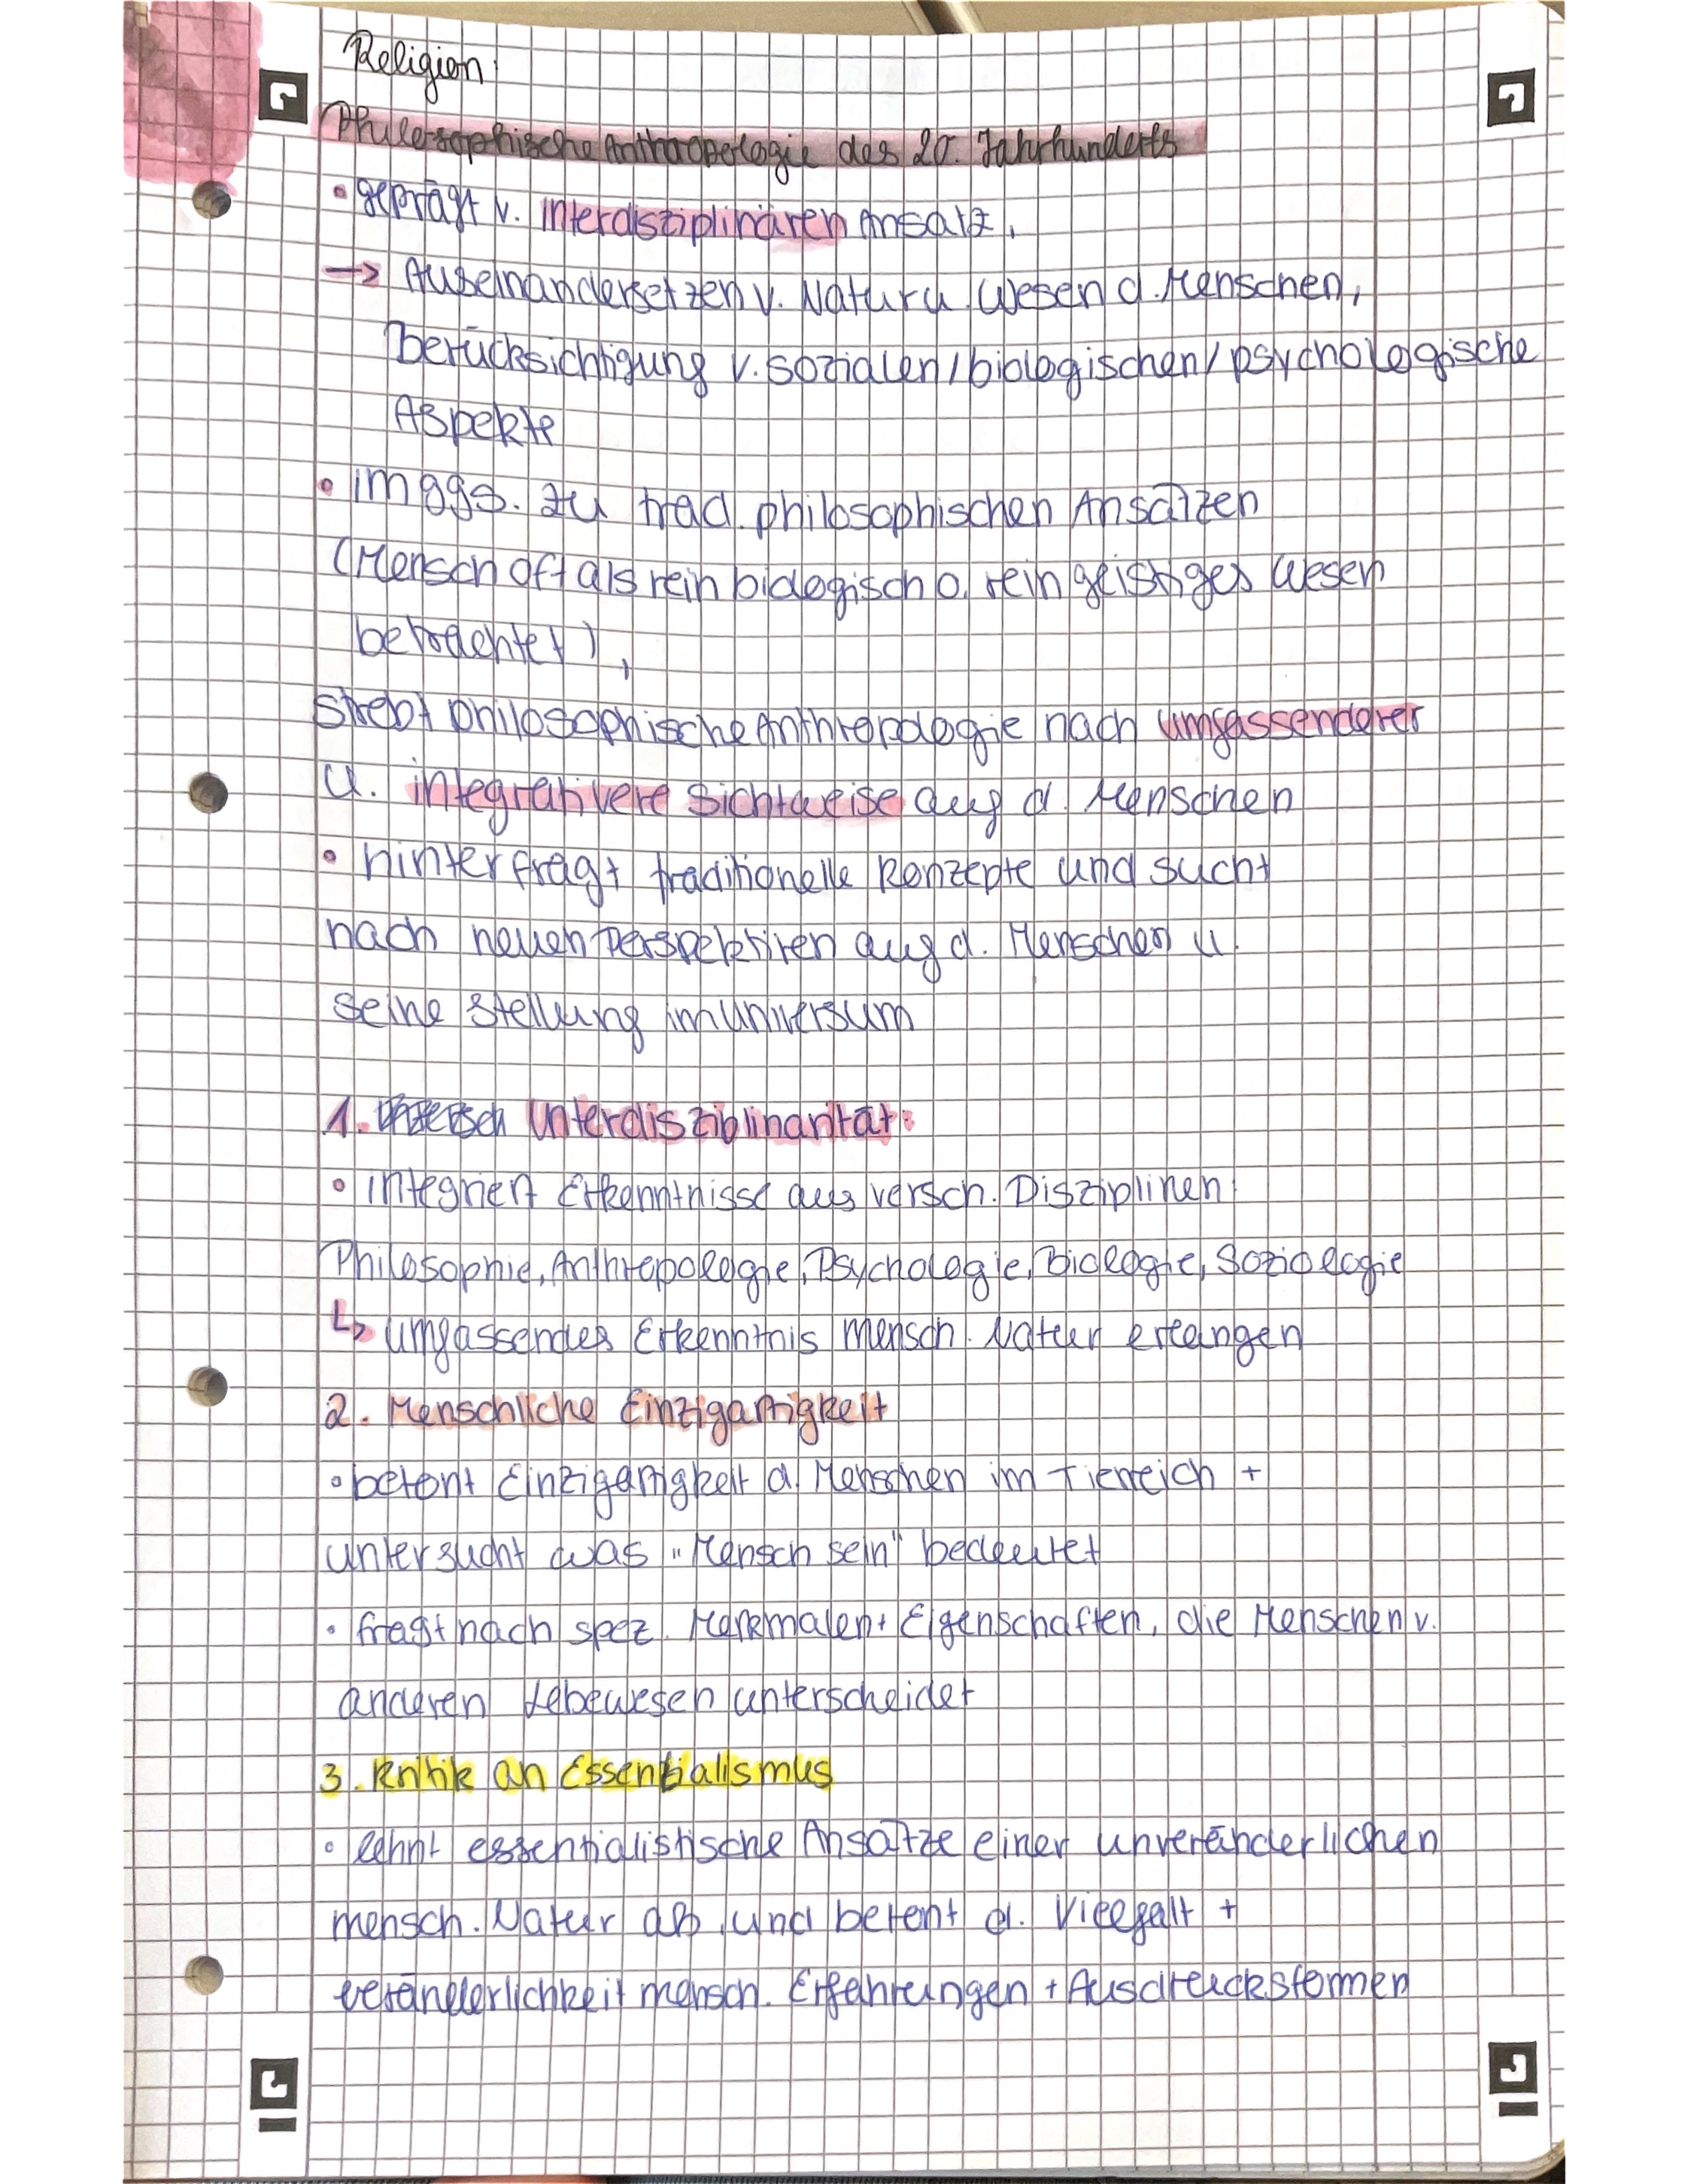 Religion:
Philosophische Anthropologie des 20. Jahrhunderts
• geprägt v. interdisziplinären Ansatz,
→ Auseinandersetzen v. Natur u. Wesen d. Menschen,
Berücksichtigung v. sozialen/biologischen/psychologische
Aspekte
• im ggs. zu trad. philosophischen Ansätzen
(Mensch oft als rein biologisch o. rein geistiges Wesen
betrachtet),
strebt philosophische Anthropologie nach umfassenderer
u. integrativere Sichtweise auf d. Menschen
• hinterfragt traditionelle Konzepte und sucht
nach neuen Perspektiven auf d. Menschen u.
seine Stellung im Universum
1. Interdisziblinarität:
• integriert Erkenntnisse aus versch. Disziplinen:
Philosophie, Anthropologie, Psychologie, Biologie, Soziologie
↳ umfassendes Erkenntnis mensch. Natur erlangen
2. Menschliche Einzigartigkeit
• betont Einzigartigkeit d. Menschen im Tierreich +
untersucht was "Mensch sein" bedeutet
• fragt nach spez. Merkmalen + Eigenschaften, die Menschen v.
anderen Lebewesen unterscheidet
3. Kritik an Essentialismus
• lehnt essentialistische Ansätze einer unveränderlichen
mensch. Natur ab und betont d. Vielfalt +
veränderlichkeit mensch. Erfahrungen + Ausdrucksformen